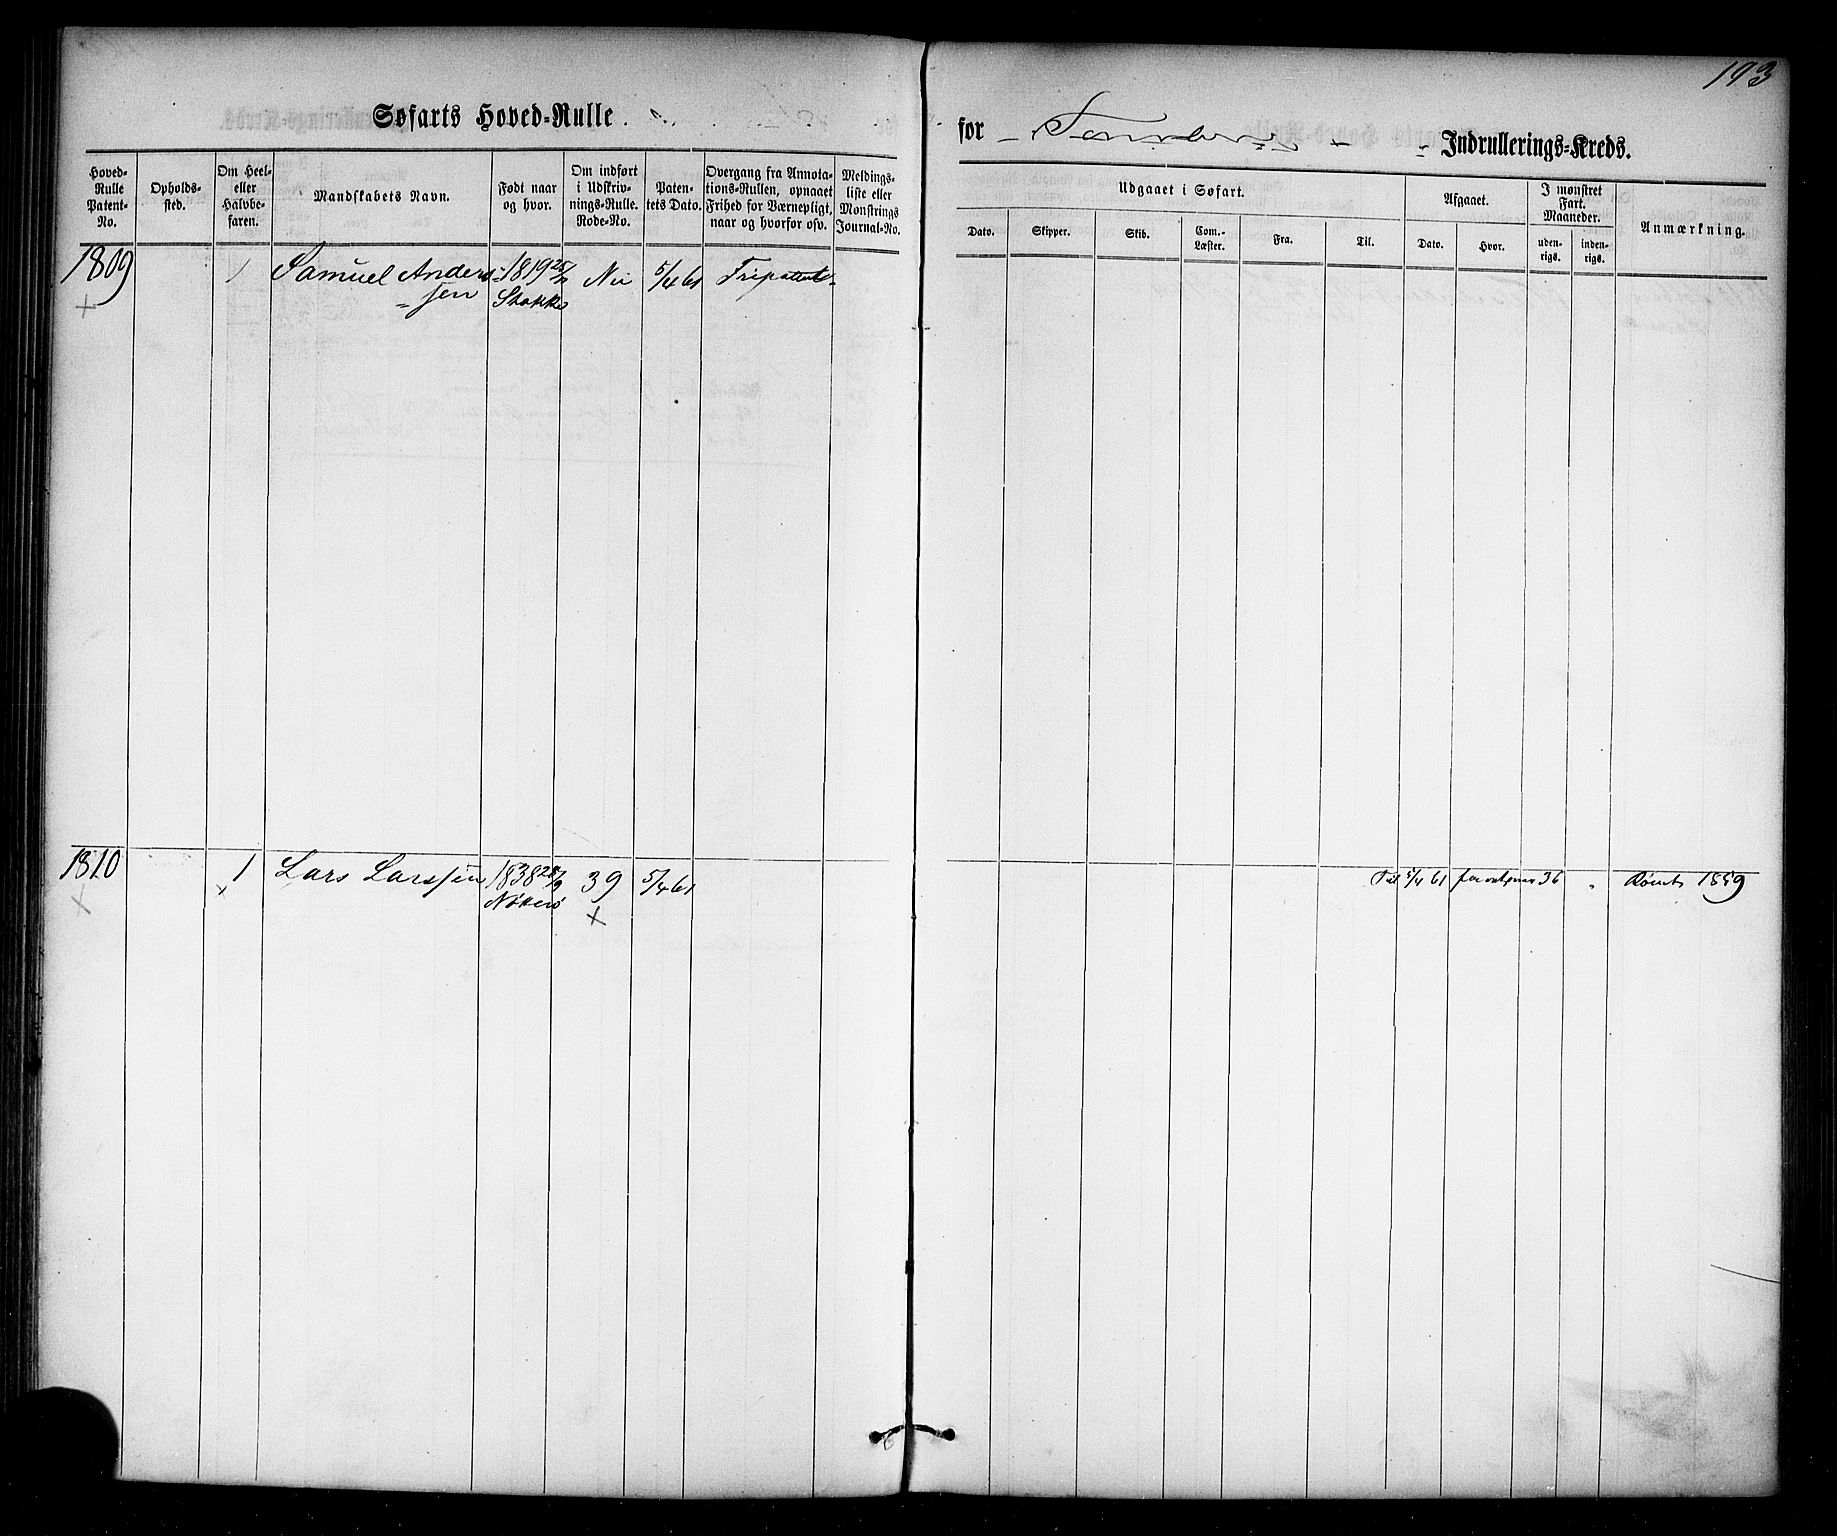 193
Søfarts Hoved-Rulle
for Tønsberg Indrullerings-Kreds.
Hoved-Rulle Patent-No.
Opholds-sted.
Om Heel- eller Halvbe-faren.
Mandskabets Navn.
Født naar og hvor.
Om indført i Udskriv-nings-Rulle. Rode-No.
Paten-tets Dato.
Overgang fra Annota-tions-Rullen, opnaaet Frihed for Værnepligt, naar og hvorfor osv.
Meldings-liste eller Mønstrings Journal-No.
Udgaaet i Søfart.
Dato.
Skipper.
Skib.
Com.-Læster.
Fra.
Til.
Afgaaet.
Dato.
Hvor.
I mønstret Fart. Maaneder.
uden-rigs.
inden-rigs.
Anmærkning.
1809 1 Samuel Anders- 1819 Nei 5/4 61 Fripatent
sen Stokke
1810 1 Lars Larssen 1838 39 5/4 61 Til 5/4 61 36 " 1859
Nøtterø